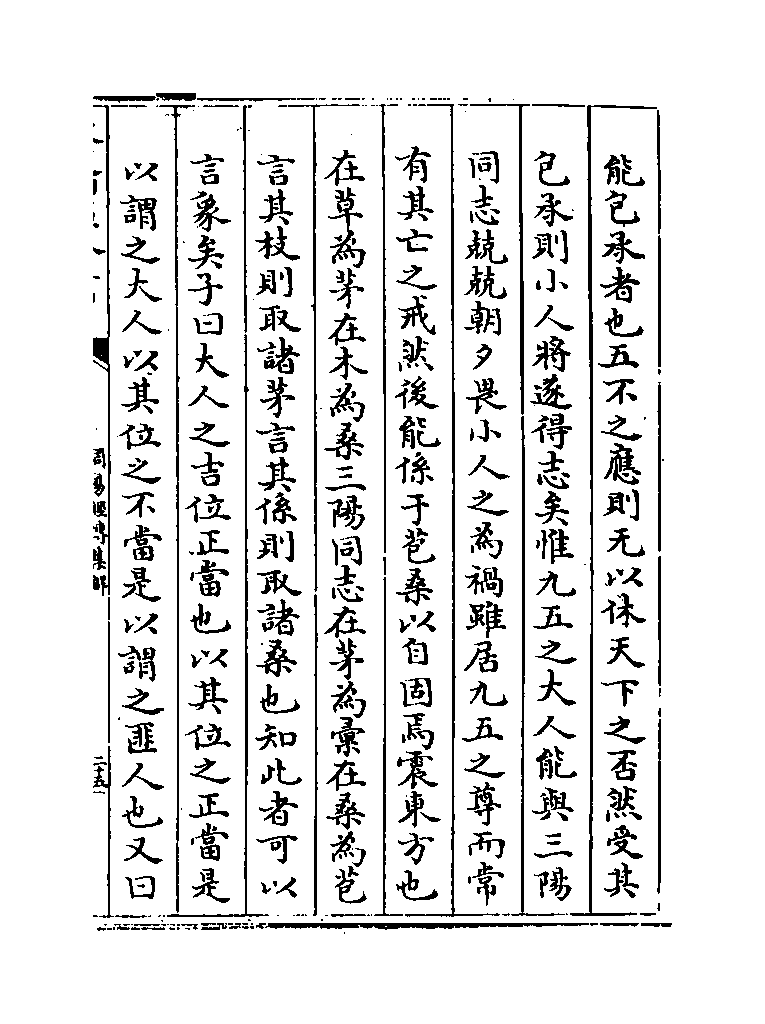 能包承者也五不之應則无以休天下之否然受其
包承則小人將遂得志矣惟九五之大人能與三陽
同志兢兢朝夕畏小人之為禍雖居九五之尊而常
有其亡之戒然後能係于苞桑以自固焉震東方也
在草為茅在木為桑三陽同志在茅為彚在桑為苞
言其枝則取諸茅言其係則取諸桑也知此者可以
言象矣子曰大人之吉位正當也以其位之正當是
以謂之大人以其位之不當是以謂之匪人也又曰
周易經傳集解
二十五